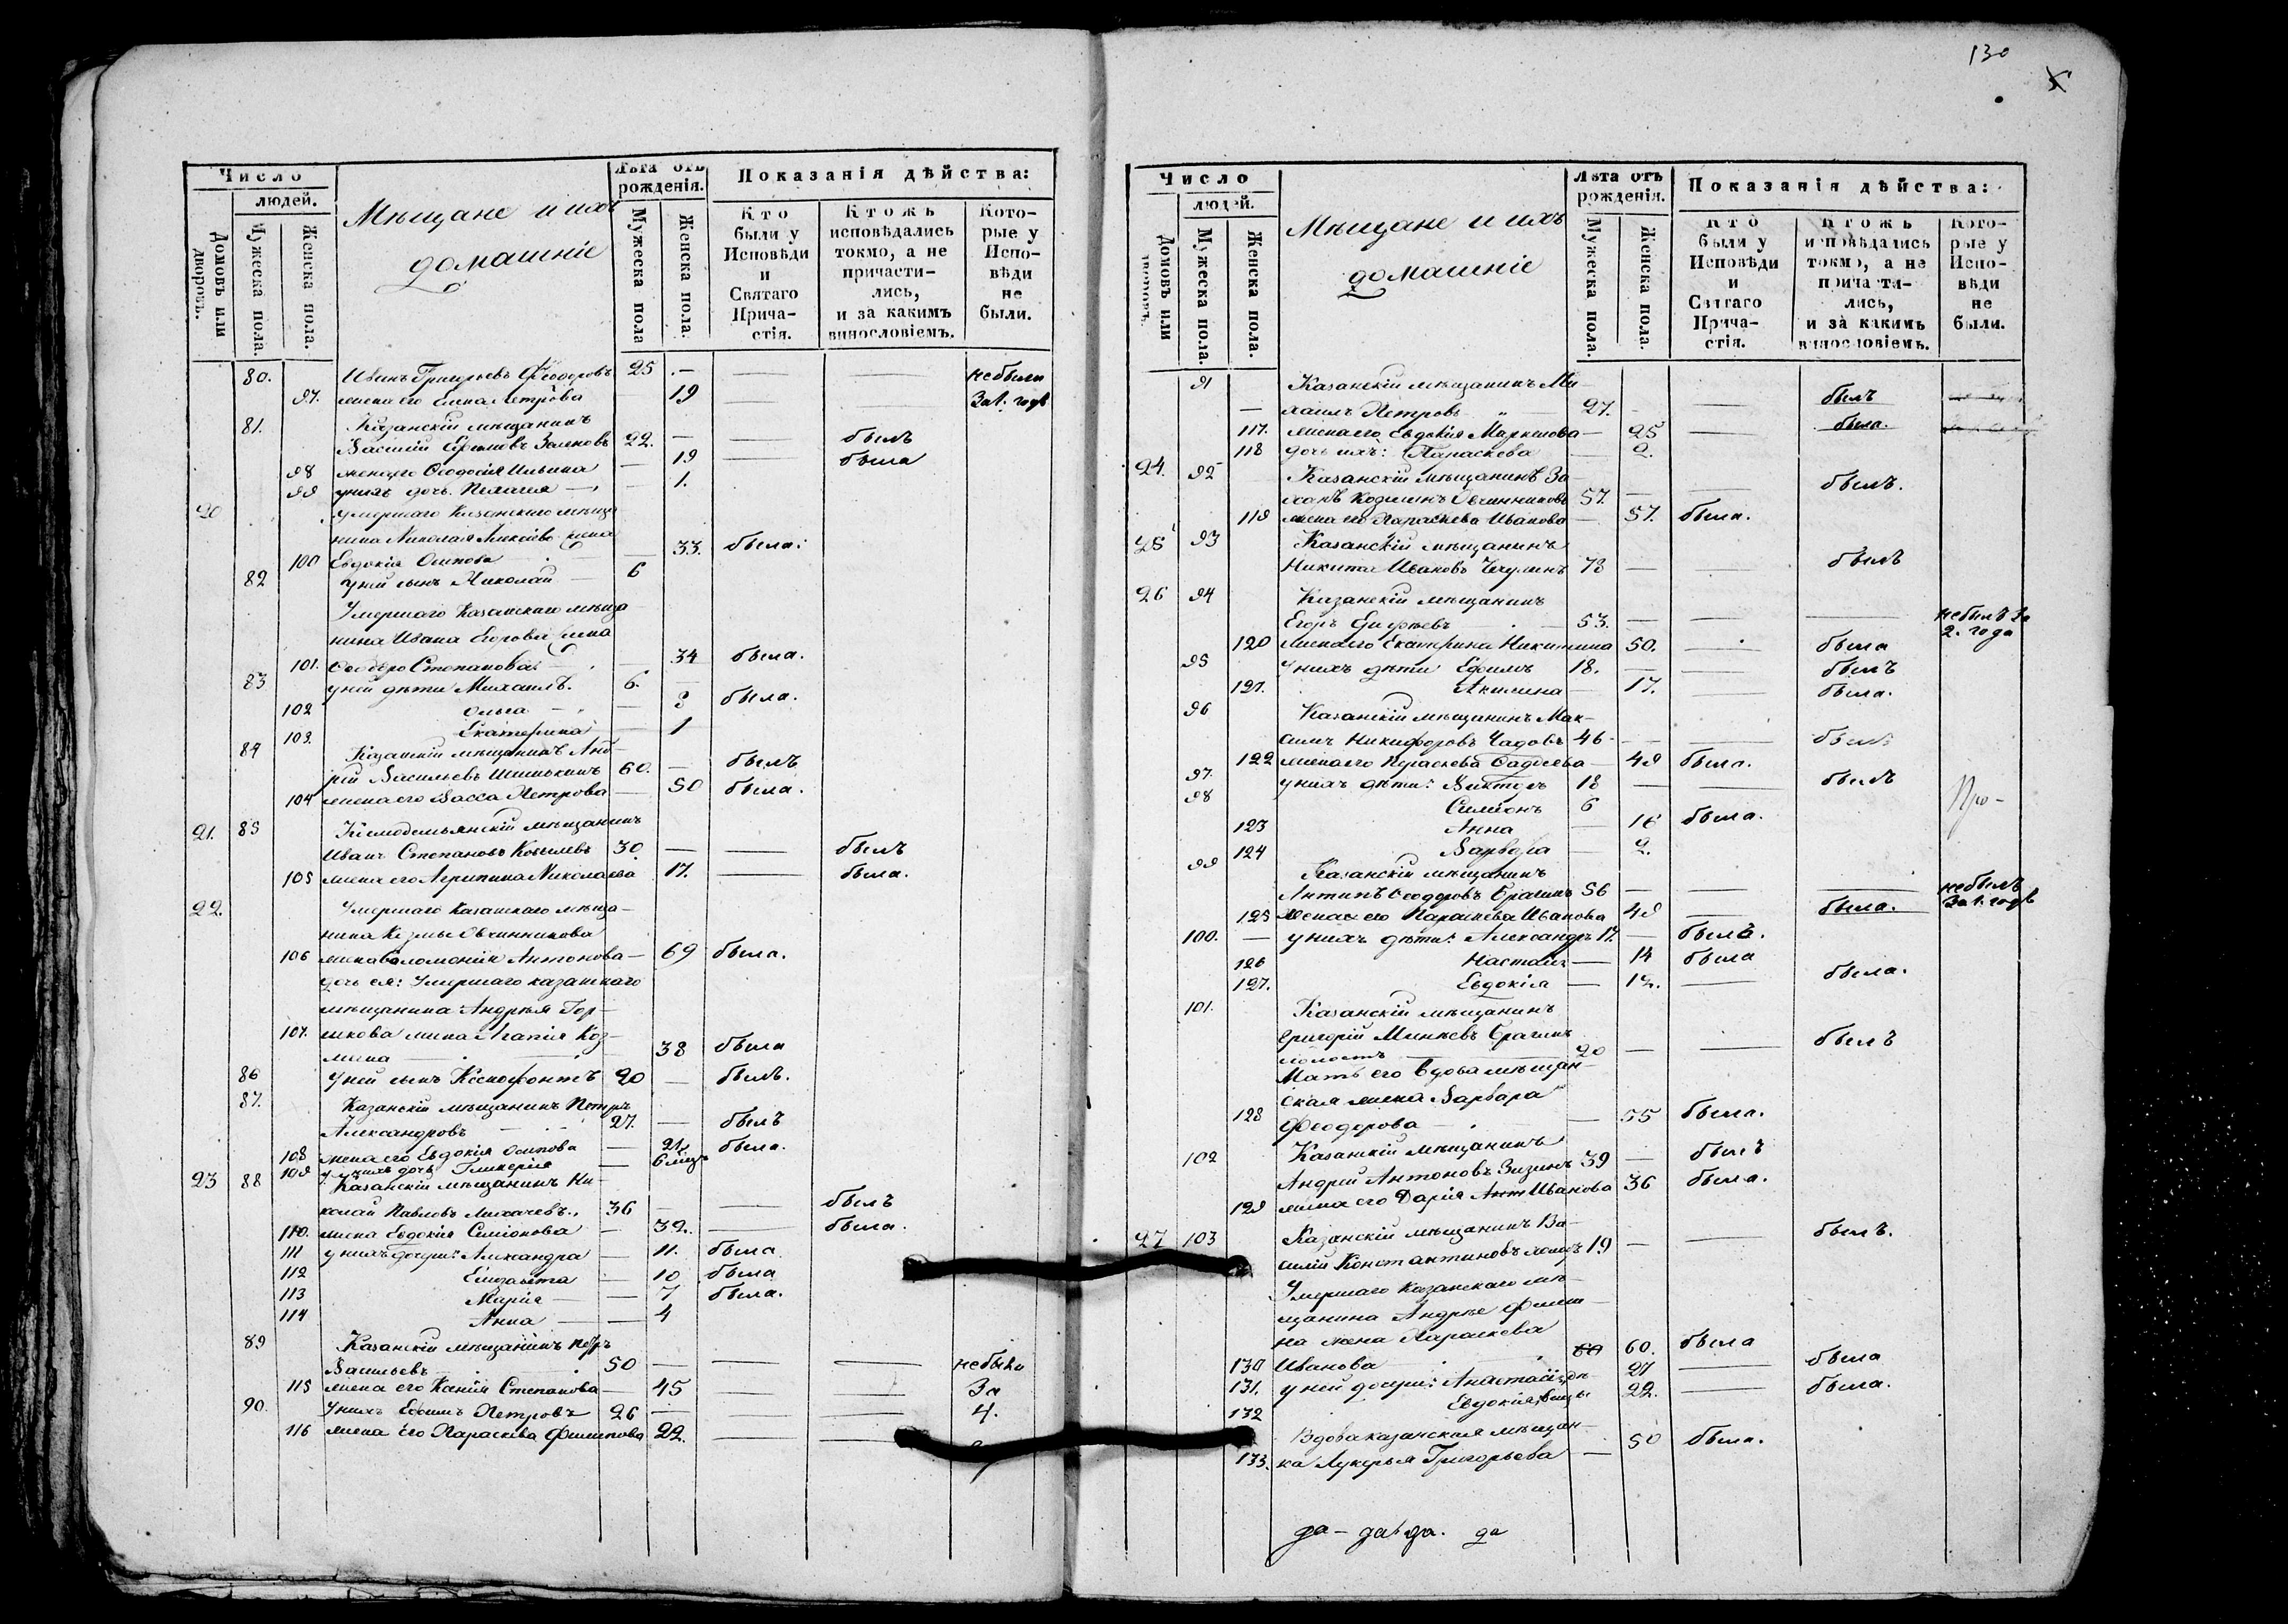 130
Число
людей.
Домовъ или дворовъ.
Мужеска пола.
Женска пола.
Мѣщане и ихъ
домашніе
Лѣта отъ
рожденія.
Мужеска пола
Женска пола.
Показанія дѣйства:
Кто
были у
Исповѣди
и
Святаго
Прича-
стія.
Ктожъ
исповѣдались
токмо, а не
причасти-
лись,
и за какимъ
винословіемъ.
Кото-
рые у
Испо-
вѣди
не
были.
80. Иванъ Григорьевъ Ѳеодоровъ 25 — — — небыли
97. жена его Елена Петрова — 19 — — За 1. годъ
81. Казанскій мѣщанинъ
Василій Ефимовъ 22. — — былъ
98 жена его Ѳеодосія Ильина — 19 — была
99 у нихъ дочь Пелагея — 1.
20 Умершаго Казанскаго мѣща
нина Николая Алексѣева жена
100 Евдокія Осипова — 33. была.
82 у ней сынъ Николай — 6
Умершаго Казанскаго мѣща
нина Ивана Егорова жена
101. Степанова — 34 была.
83 у ней дѣти Михаилъ. 6. —
102 Ольга — — 8 была.
103. Екатерина — 1
84 Казанскій мѣщанинъ
Васильевъ 60. — былъ
104 жена его Васса Петрова — 50 была.
21. 85 Козмодемьянскій мѣщанинъ
Иванъ Степановъ 30 — — былъ
105 жена его Агрипина Николаева 17. — была.
22. Умершаго Казанскаго мѣща-
нина Козмы Овчинникова
106 жена Соломонія Антонова — 69 была.
дочь ея: Умершаго казанскаго
мѣщанина Андрея Гор-
107. шкова жена Агапія Коз-
мина — 38 была
86 У ней сынъ Ксенофонтъ 20 — былъ.
87. Казанскій мѣщанинъ Петръ
Александровъ — 27. — былъ
108 жена его Евдокія Осипова — 21. была.
109 У нихъ дочь Гликерія — 6 мѣц.
23 88 Казанскій мѣщанинъ Ни-
колай Павловъ Лихачевъ. 36 — — былъ
110. жена Евдокія Симіонова — 32. — была.
111 у нихъ дочери: Александра — 11. была
112 Елизавета — 10 была
113 Марія — — 7 была.
114 Анна — — 4
89 Казанскій мѣщанинъ Петръ
Васильевъ — 50 — — — небыли
115 жена его Ксенія Степанова — 45 — — За
90. У нихъ Ефимъ Петровъ 26 — — — 4.
116 жена его Параскева Филипова 22. — —
Число
людей.
Домовъ или
Мужеска пола.
Женска пола.
Мѣщане и ихъ
домашніе
Лѣта отъ
рожденія.
Мужеска пола.
Женска пола.
Показанія дѣйства:
Кто
были у
Исповѣди
и
Святаго
Прича-
стія.
Ктожъ
исповѣдались
токмо, а не
причасти-
лись,
и за какимъ
винословіемъ.
Кото-
рые у
Испо-
вѣди
не
были.
91 Казанскій мѣщанинъ Ми-
— хаилъ Петровъ — 27. — — былъ
117. жена его Евдокія — 25 — была.
118 дочь ихъ: Параскева — 2.
24. 92 Казанскій мѣщанинъ За
харъ Козминъ Овчинниковъ 57. — — былъ.
119 жена его Параскева Иванова — 57. была.
25 93 Казанскій мѣщанинъ
Никита Ивановъ 73 — — былъ
26 94 Казанскій мѣщанинъ
Егоръ — 53. — — — небылъ За
2. года
120 жена его Екатерина Никитина 50. — была
95 У нихъ дѣти Ефимъ 18. — — былъ
121. Акилина — 17. — была.
96 Казанскій мѣщанинъ Мак-
симъ Никифоровъ Чадовъ 46 — — былъ
122 жена его Параскева — 49 была.
97. у нихъ дѣти: Викторъ 18 — — былъ
98 Симіонъ 6
123 Анна — 16 была.
124 Варвара — 2.
Про-
99 Казанскій мѣщанинъ
Антипъ Ѳеодоровъ 56 — — — небылъ
За 1. годъ
125 Жена его Параскева Иванова 49 — была.
100. — у нихъ дѣти: Александръ 17. — былъ.
126 — 14 была
127. Евдокія — 12. — была.
101. Казанскій мѣщанинъ
Григорій
холостъ — 20 — — былъ
Мать его вдова мѣщан-
ская жена Варвара
128 Ѳеодорова — 55 была.
102 Казанскій мѣщанинъ
Андрей Антоновъ Зизинъ 39 — былъ
129 жена его Дарія Иванова 36 была.
27 103 Казанскій мѣщанинъ Ва-
силій Константиновъ холостъ 19 — — былъ.
Умершаго Казанскаго мѣ-
щанина Андрея
на жена Параскева
130 Иванова 60. была
131. у ней дочери: Анастасія 27 — была
132 Евдокія 22. — была.
Вдова казанская мѣщан-
133. ка Лукерья Григорьева — 50 была.
да- да да. да